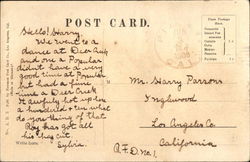 POST CARD.
Hello! Harry,
We went to a
dance at Deer Creek
and one a Popular
didnt have a very
good time at Popular
but had a fine
time a Deer Creek
It awfully hot up here
a hundred & ten what
do you thing of that
Roy has got all
his hay cut
Sylvia.
Write here.
Mr. Harry Parsons
Inglewood
Los Angeles Co
California
R.F.D. No. 1.